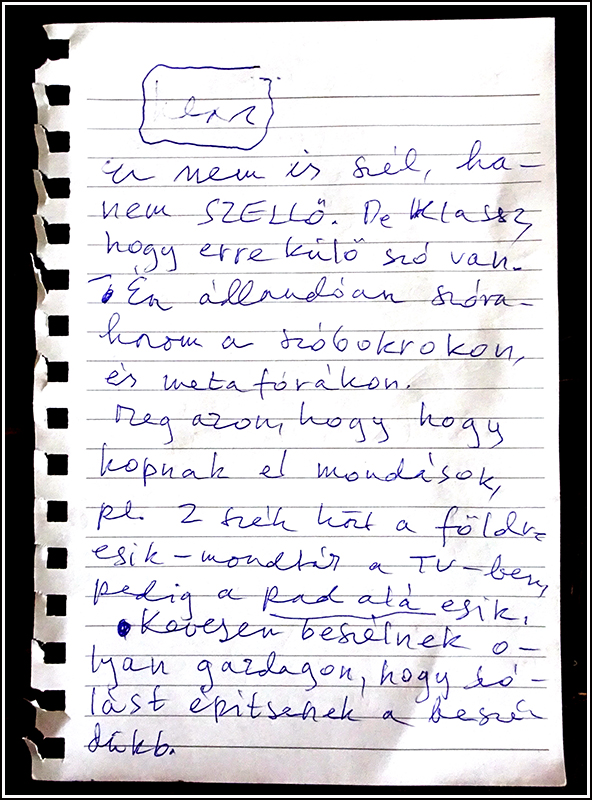 Ez nem is szél, ha-
nem SZELLŐ. De klassz,
hogy erre külö szó van.
Én állandóan szóra-
kozom a szóbokrokon,
és metafórákon.
Meg azon, hogy hogy
kopnak el mondások,
pl. 2 szék közt a földre
esik - mondták a TV-ben,
pedig a pad alá esik.
• Kevesen beszélnek o-
lyan gazdagon, hogy szó-
lást építsenek a beszé-
dükb.